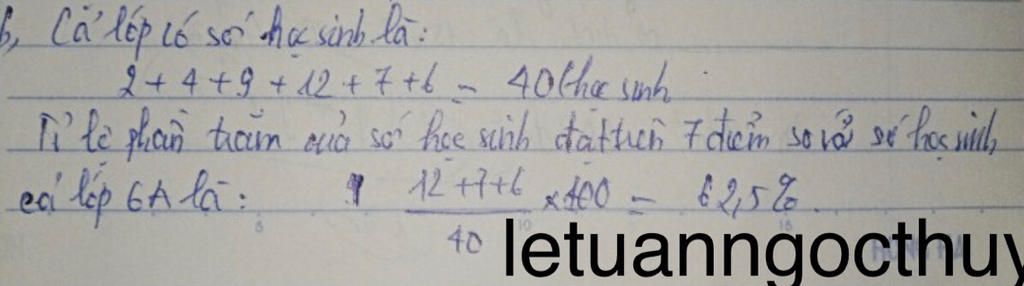 b, Cả lớp có số học sinh là:
2 + 4 + 9 + 12 + 7 + 6 = 40 (học sinh
Tỉ lệ phần trăm của số học sinh đạt trên 7 điểm so với số học sinh
cả lớp 6A là: 12 + 7 + 6 / 40 × 100 = 62,5 %.
letuanngocthuy